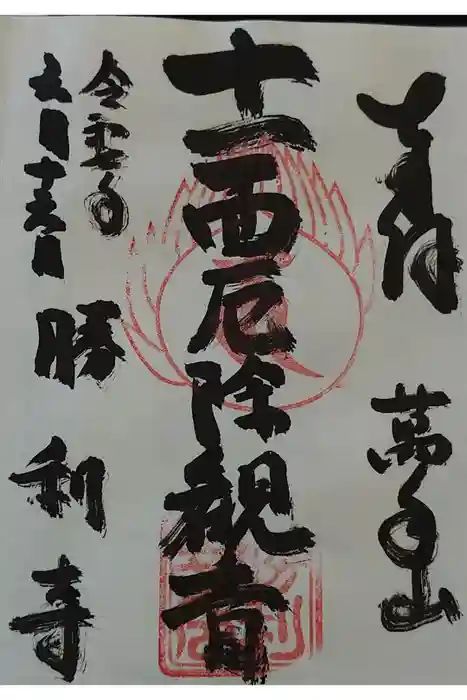 奉拝
萬年山
十一面厄除観音
令和年
六月十六日
勝利寺